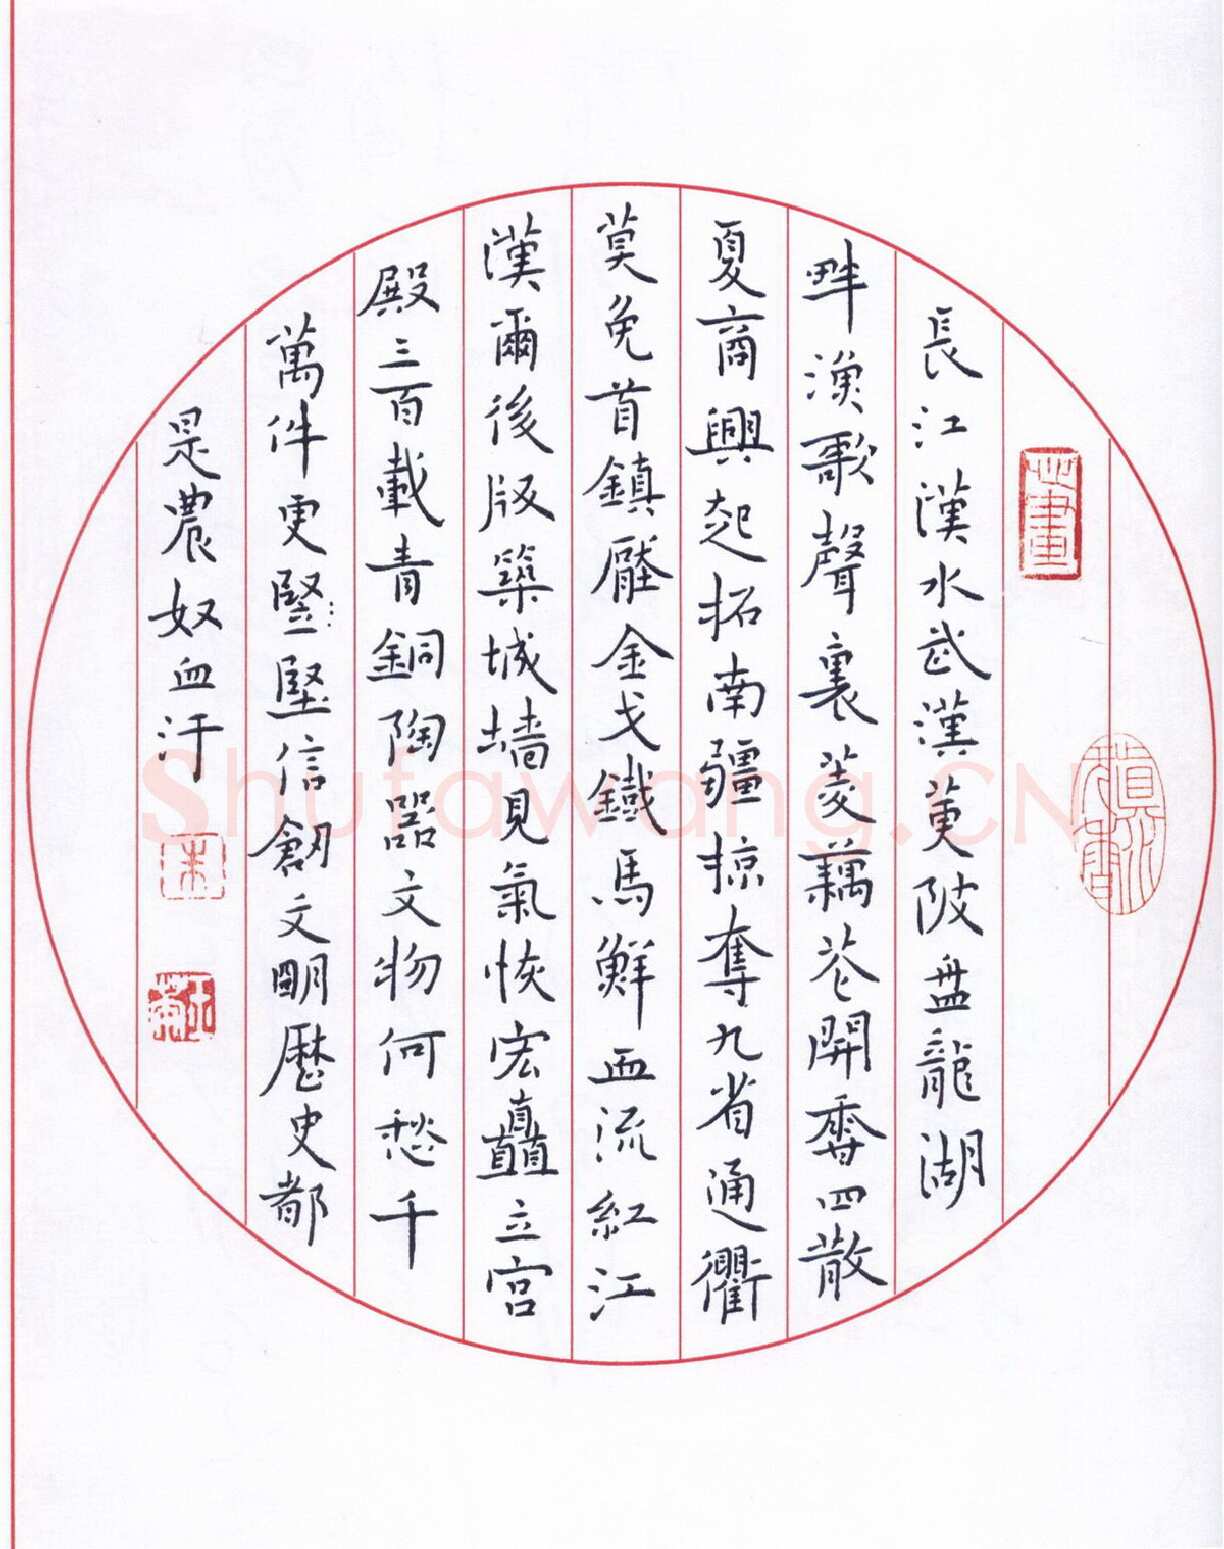 長江漢水武漢黄陂盘龍湖
畔漁歌聲裏菱藕花開香四散
夏商興起拓南疆掠奪九省通衢
莫免首鎮壓金戈鐵馬鮮血流紅江
漢爾後版築城墻見氣恢宏矗立宫
殿三百載青銅陶器文物何愁千
萬件更豎堅信創文明歷史都
是農奴血汗
Shufawang.CN